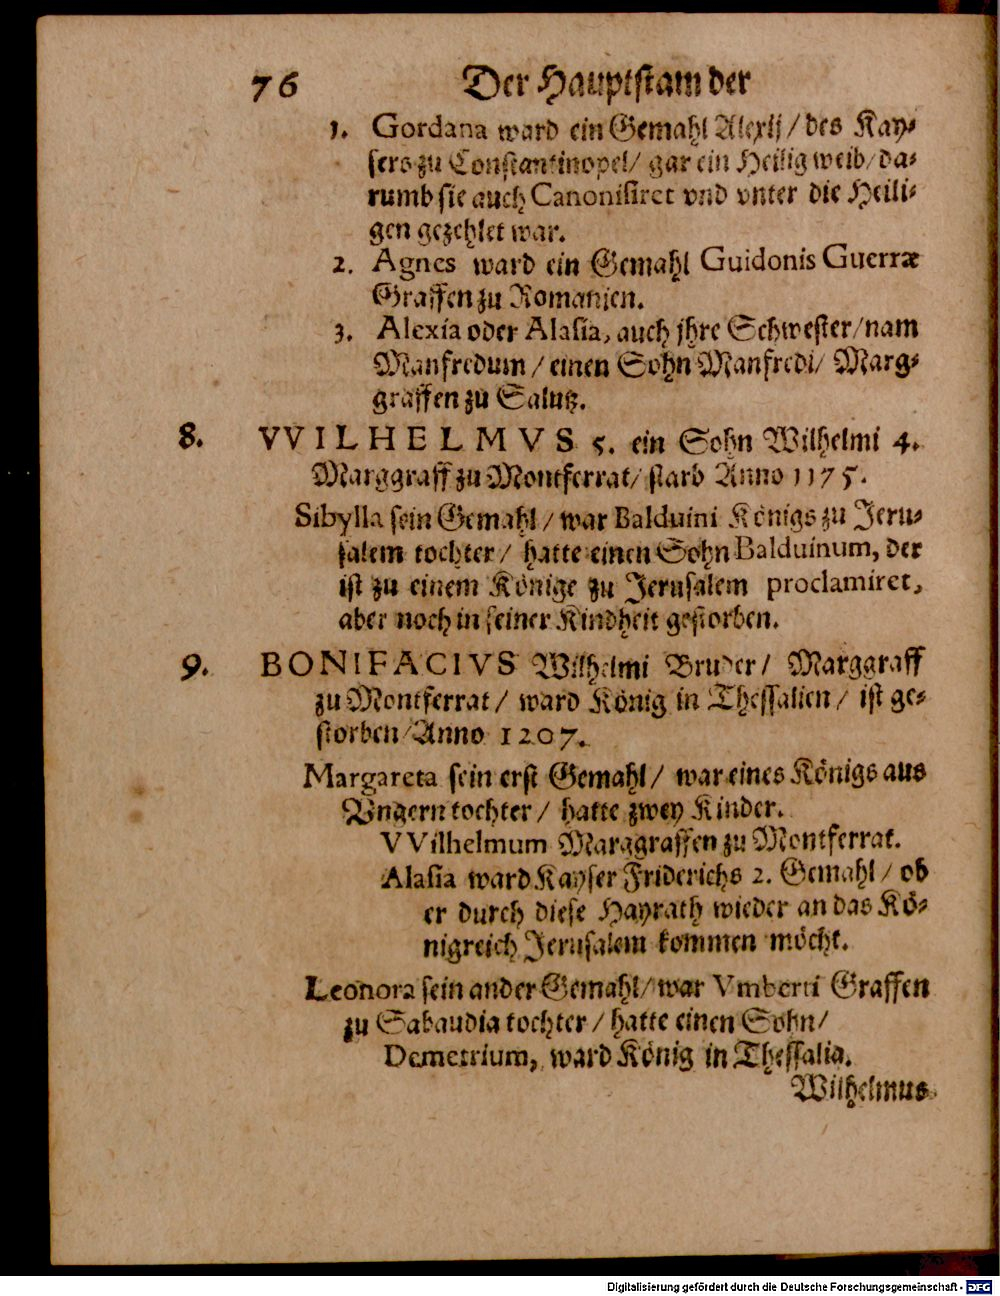 76 Der Hauptstam der
1. Gordana ward ein Gemahl Alexij / des Kay-
sers zu Constantinopel / gar ein Heilig weib / da-
rumb sie auch Canonisiret vnd vnter die Heili-
gen gezehlet war.
2. Agnes ward ein Gemahl Guidonis Guerræ
Graffen zu Romanien.
3. Alexia oder Alasia, auch jhre Schwester / nam
Manfredum / einen Sohn Manfredi / Marg-
graffen zu Salutz.
8. VVILHELMVS 5. ein Sohn Wilhelmi 4.
Marggraff zu Montferrat / starb Anno 1175.
Sibylla sein Gemahl / war Balduini Königs zu Jeru-
salem tochter / hatte einen Sohn Balduinum, der
ist zu einem Könige zu Jerusalem proclamiret,
aber noch in seiner Kindheit gestorben.
9. BONIFACIVS Wilhelmi Bruder / Marggraff
zu Montferrat / ward König in Thessalien / ist ge-
storben / Anno 1207.
Margareta sein erst Gemahl / war eines Königs aus
Vngern tochter / hatte zwey Kinder.
VVilhelmum Marggraffen zu Montferrat.
Alasia ward Kayser Friderichs 2. Gemahl / ob
er durch diese Hayrath wieder an das Kö-
nigreich Jerusalem kommen möcht.
Leonora sein ander Gemahl / war Vmberti Graffen
zu Sabaudia tochter / hatte einen Sohn /
Demetrium, ward König in Thessalia.
Wilhelmus
Digitalisierung gefördert durch die Deutsche Forschungsgemeinschaft - DFG